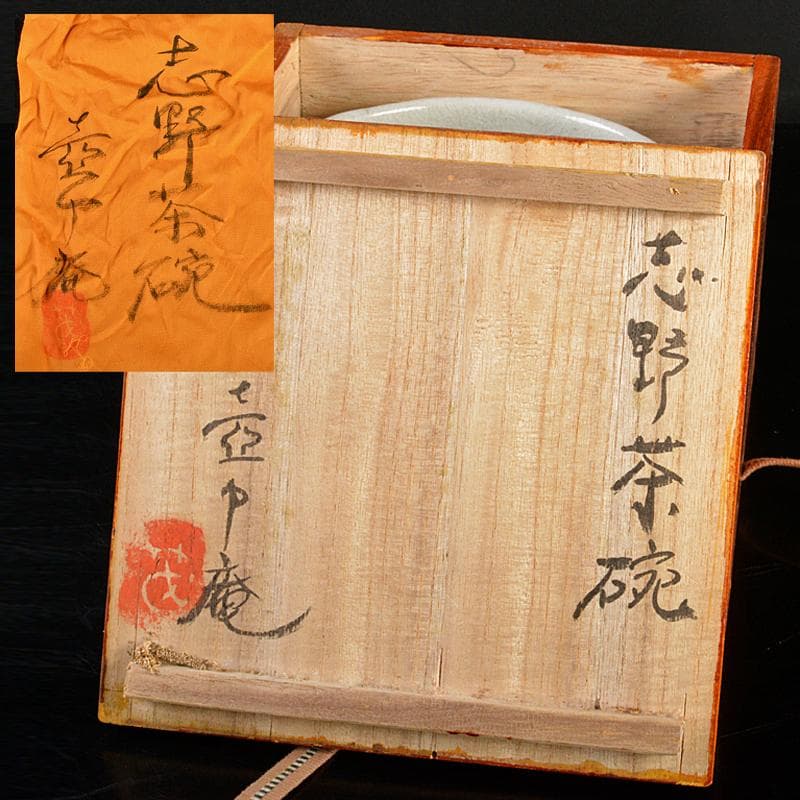 志野茶碗
壺中庵
志野茶碗
壺中庵